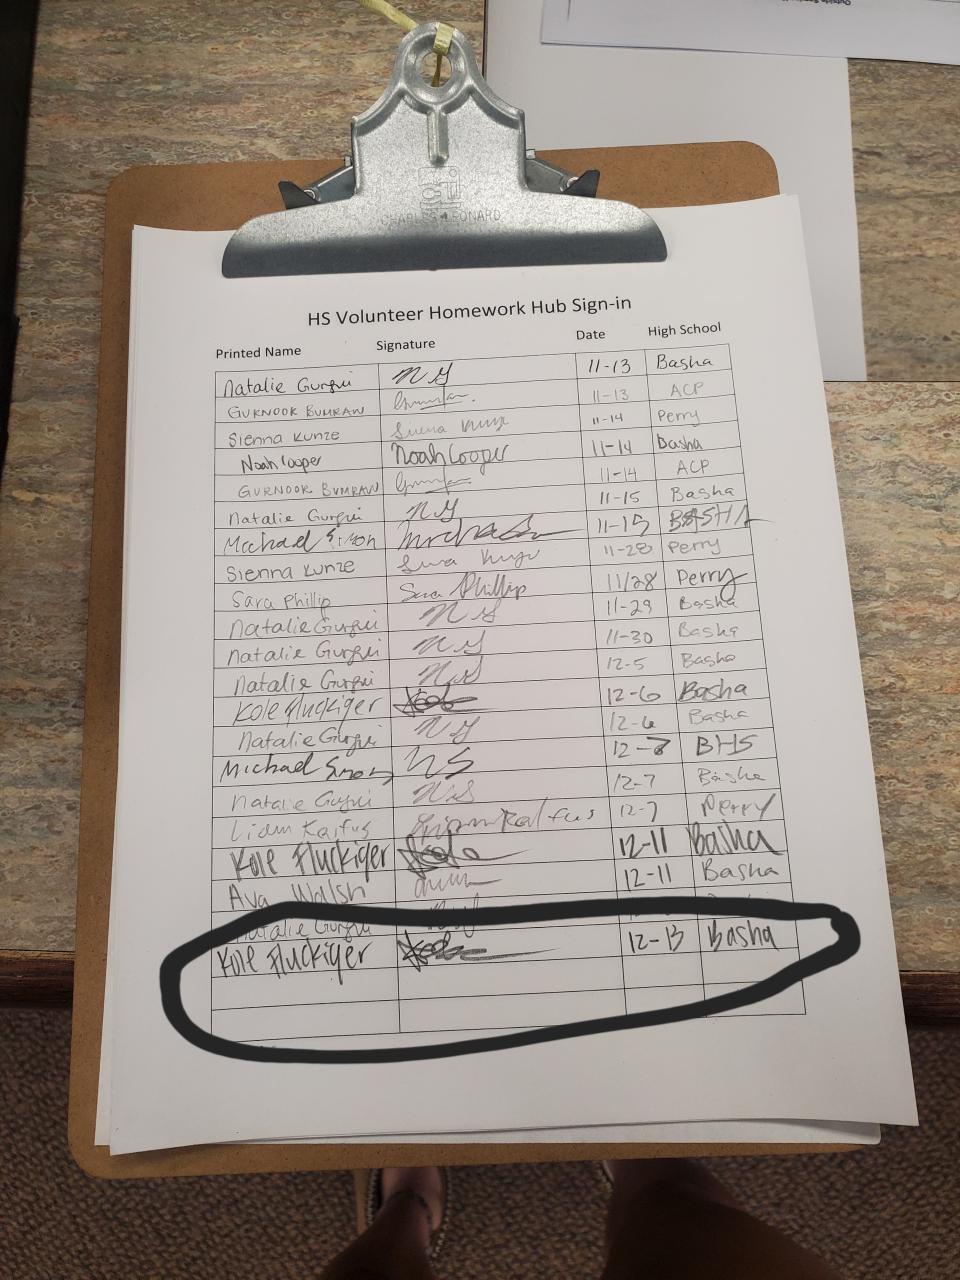 CHARLES LEONARD
HS Volunteer Homework Hub Sign-in
Printed Name Signature Date High School
Natalie Gurgui NG 11-13 Basha
GURNOOR BUMRAW 11-13 ACP
Sienna Kunze Sienna Kunze 11-14 Perry
Noah Cooper Noah Cooper 11-14 Basha
GURNOOR BUMRAW 11-14 ACP
Natalie Gurgui NG 11-15 Basha
Micchael Simon 11-15 BASHA
Sienna Kunze 11-28 Perry
Sara Phillip Sara Phillip 11/28 Perry
Natalie Gurgui NG 11-29 Basha
Natalie Gurgui NG 11-30 Basha
Natalie Gurgui NG 12-5 Basha
Kole Fluckiger 12-6 Basha
Natalie Gurgui NG 12-6 Basha
Michael Simon MS 12-7 BHS
Natalie Gurgui NG 12-7 Basha
Liam Kaifus 12-7 Perry
Kole Fluckiger 12-11 Basha
Ava Wallsh 12-11 Basha
Natalie Gurgui
Kole Fluckiger 12-13 Basha